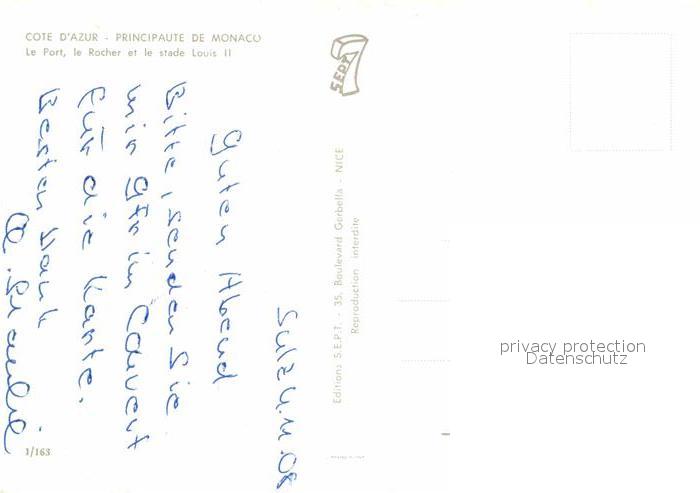 COTE D'AZUR - PRINCIPAUTE DE MONACO
Le Port, le Rocher et le stade Louis II
SEPT
7
Editions S.E.P.T. - 35, Boulevard Gorbella - NICE
Reproduction interdite
Guten Abend
Bitte, senden Sie
mir im Couvert
für die Karte.
Besten Dank
1/163
privacy protection
Datenschutz